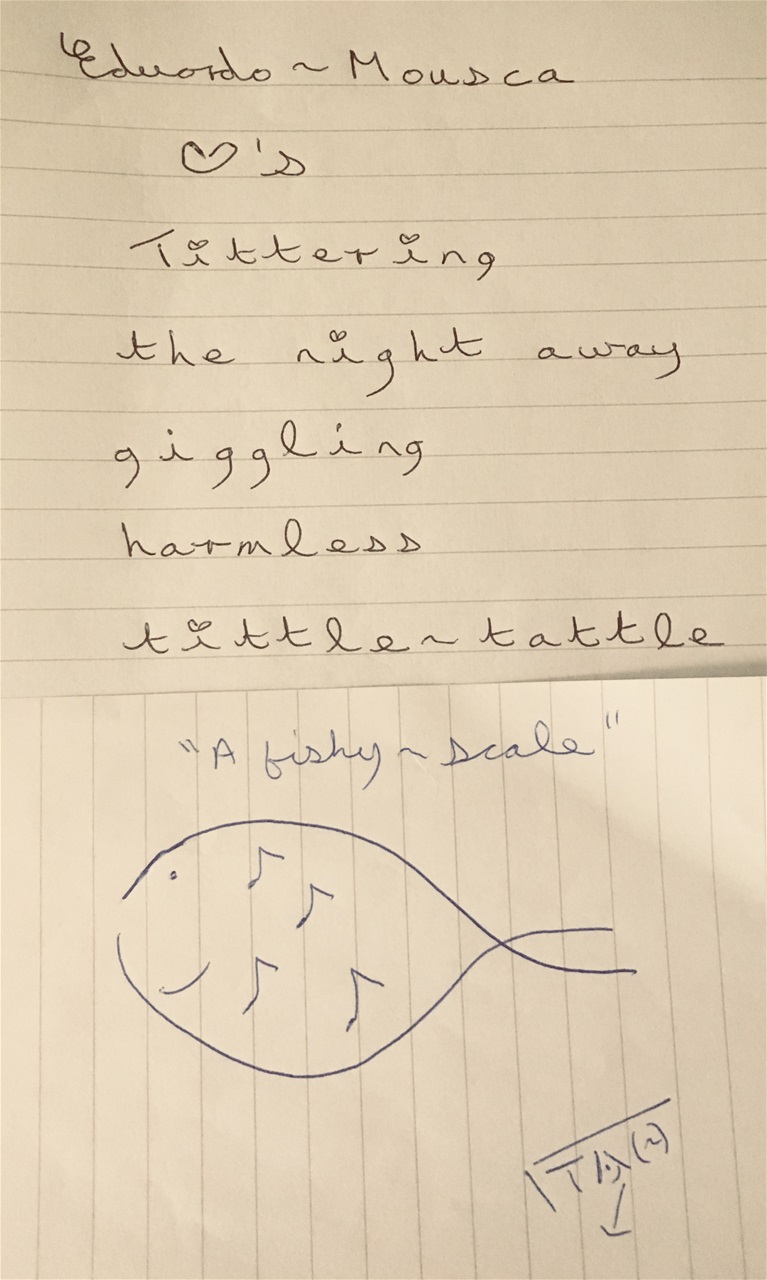 Eduardo ~ Mousca
♡'s
Tittering
the night away
giggling
harmless
tittle ~ tattle
"A fishy ~ scale"